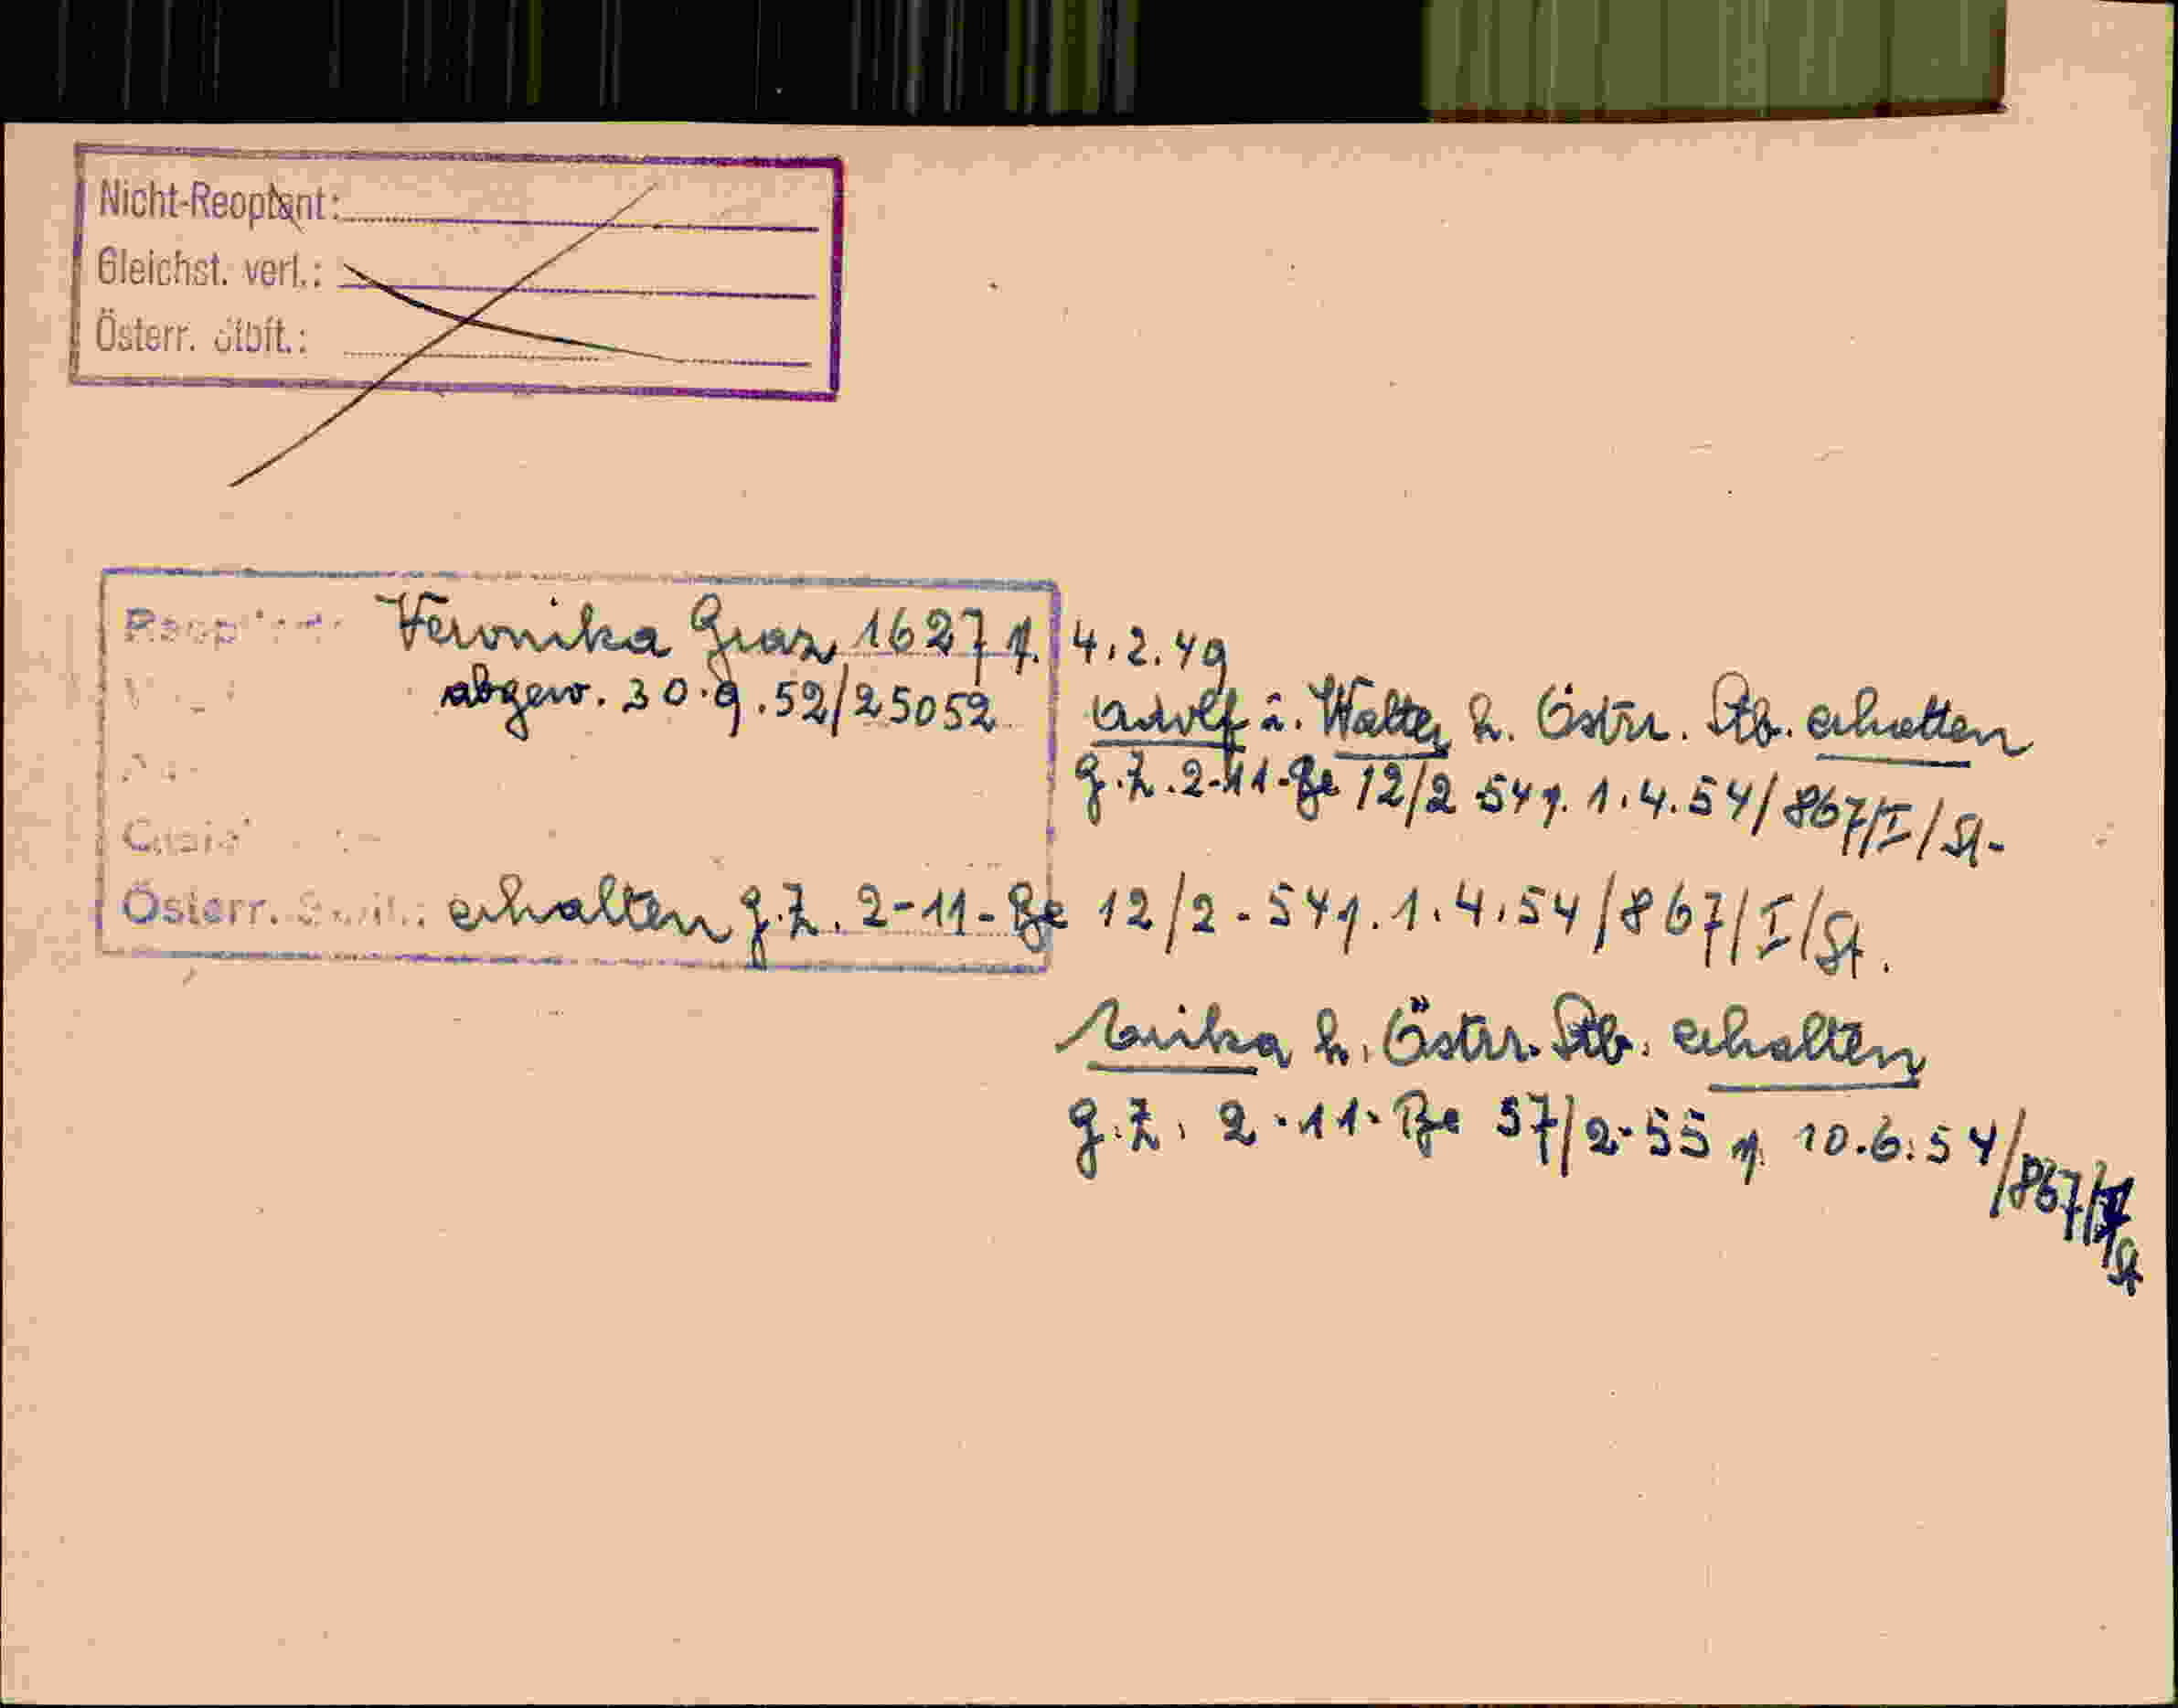 Nicht-Reoptant:
Gleichst. verl.:
Österr. Stbft.:
Veronika Graz 1627 v. 4.2.49
abgew. 30.9.52/25052
Adolf u. Walter h. Östrr. Stb. erhalten
g. Z. 2-11-Be 12/2-54 v. 1.4.54/867/I/St.
Österr. erhalten g. Z. 2-11-Be 12/2-54 v. 1.4.54/867/I/St.
h. Östrr. Stb. erhalten
g. Z. 2-11-Be 57/2-55 v. 10.6.54/867/